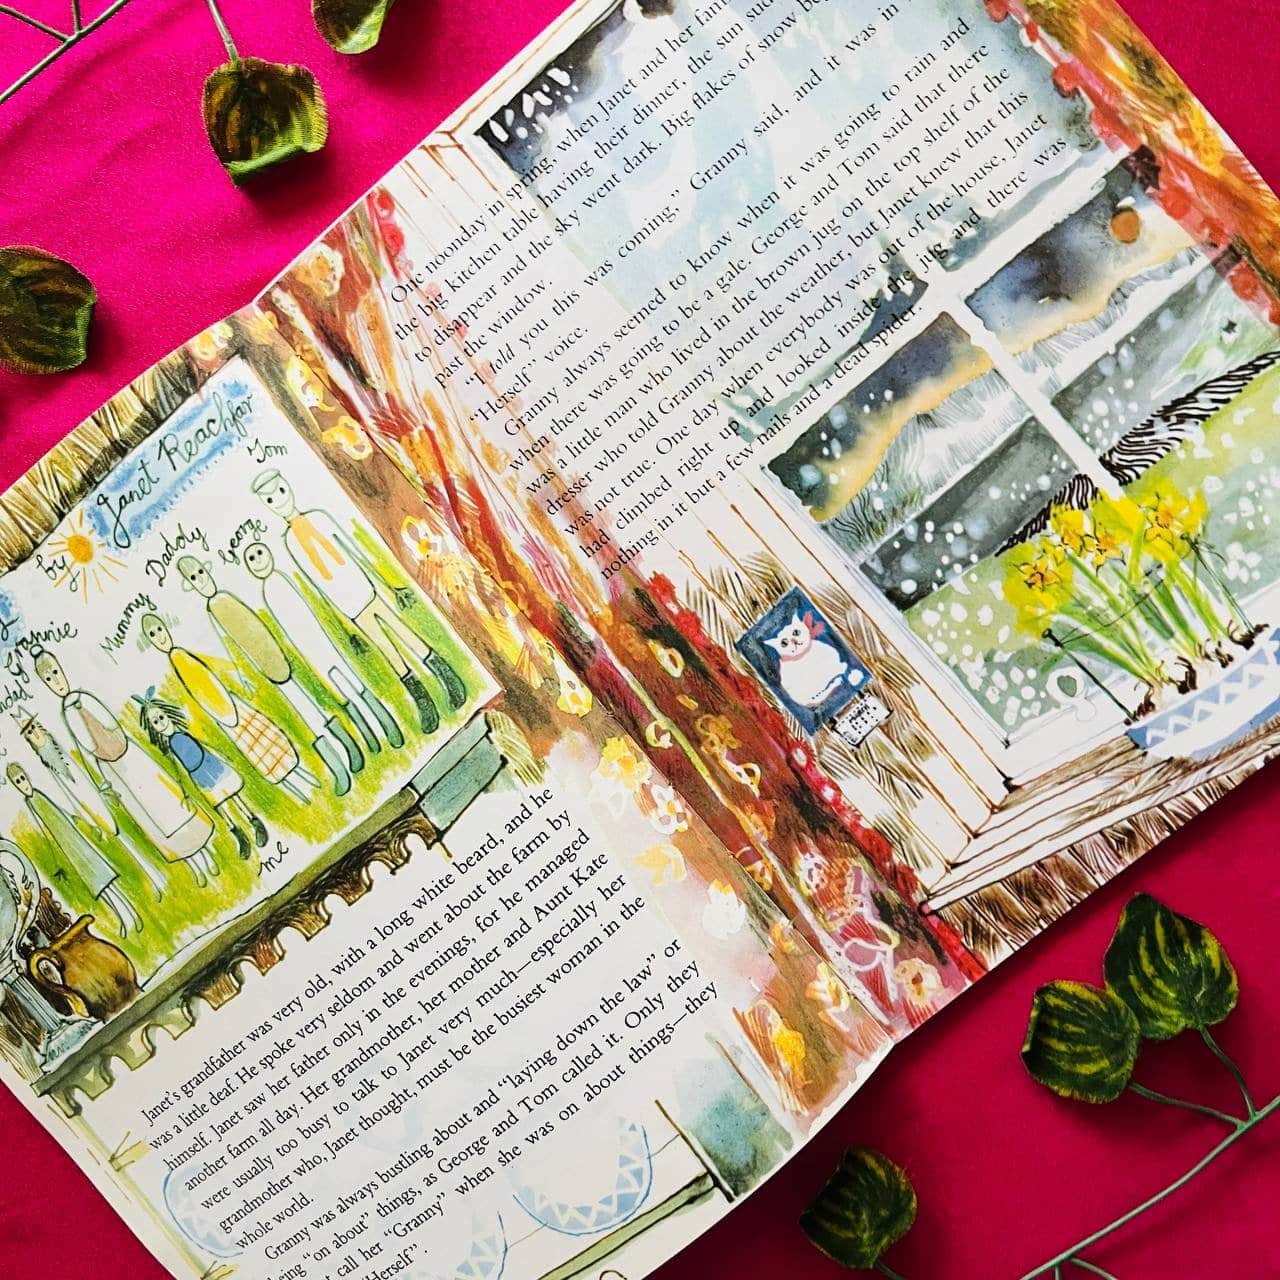 by
Janet Reachfar
Tom
George
Daddy
Mummy
Grannie
me
Janet's grandfather was very old, with a long white beard, and he
was a little deaf. He spoke very seldom and went about the farm by
himself. Janet saw her father only in the evenings, for he managed
another farm all day. Her grandmother, her mother and Aunt Kate
were usually too busy to talk to Janet very much—especially her
grandmother who, Janet thought, must be the busiest woman in the
whole world.
Granny was always bustling about and “laying down the law” or
being “on about” things, as George and Tom called it. Only they
call her “Granny” when she was on about things—they
“Herself”.
One noonday in spring, when Janet and her
the big kitchen table having their dinner, the sun
to disappear and the sky went dark. Big flakes of snow
past the window.
“I told you this was coming,” Granny said, and it was in
“Herself” voice.
Granny always seemed to know when it was going to rain and
when there was going to be a gale. George and Tom said that there
was a little man who lived in the brown jug on the top shelf of the
dresser who told Granny about the weather, but Janet knew that this
was not true. One day when everybody was out of the house, Janet
had climbed right up and looked inside the jug and there was
nothing in it but a few nails and a dead spider.